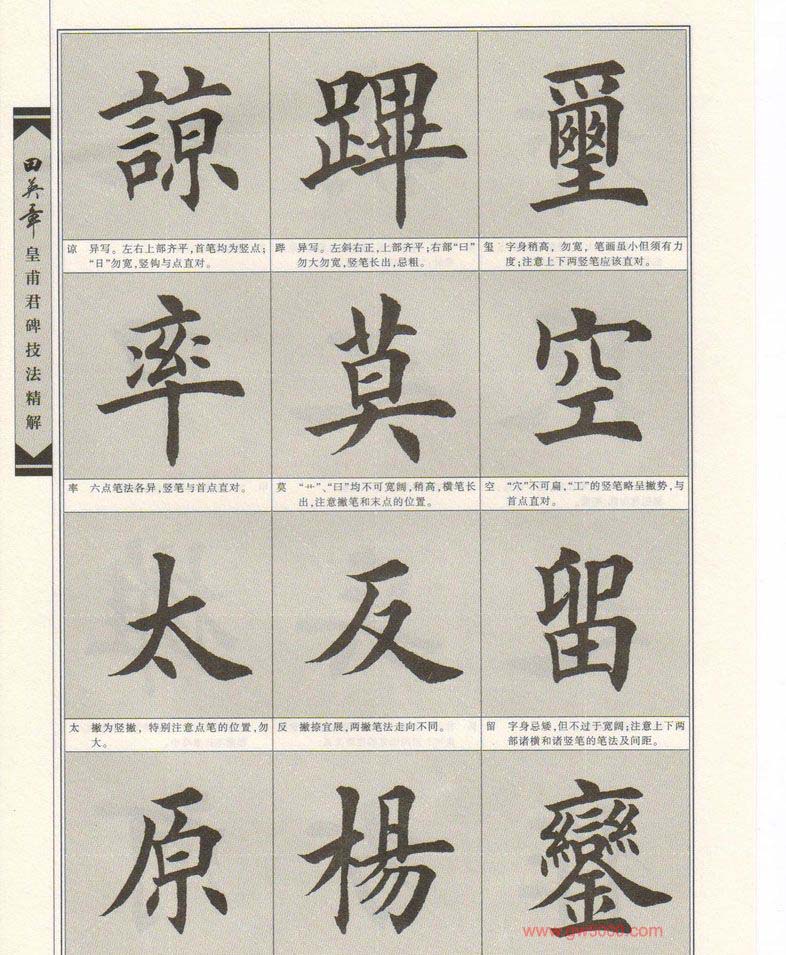 田英章
皇甫君碑技法精解
諒 蹕 璽
谅 异写。左右上部齐平,首笔均为竖点;
“日”勿宽,竖钩与点直对。
跸 异写。左斜右正,上部齐平;右部“曰”
勿大勿宽,竖笔长出,忌粗。
玺 字身稍高,勿宽,笔画虽小但须有力
度;注意上下两竖笔应该直对。
率 莫 空
率 六点笔法各异,竖笔与首点直对。
莫 “艹”、“曰”均不可宽阔,稍高,横笔长
出,注意撇笔和末点的位置。
空 “穴”不可扁,“工”的竖笔略呈撇势,与
首点直对。
太 反 留
太 撇为竖撇,特别注意点笔的位置,勿
大。
反 撇捺宜展,两撇笔法走向不同。
留 字身忌矮,但不过于宽阔;注意上下两
部诸横和诸竖笔的笔法及间距。
原 楊 鑾
www.gw5000.com